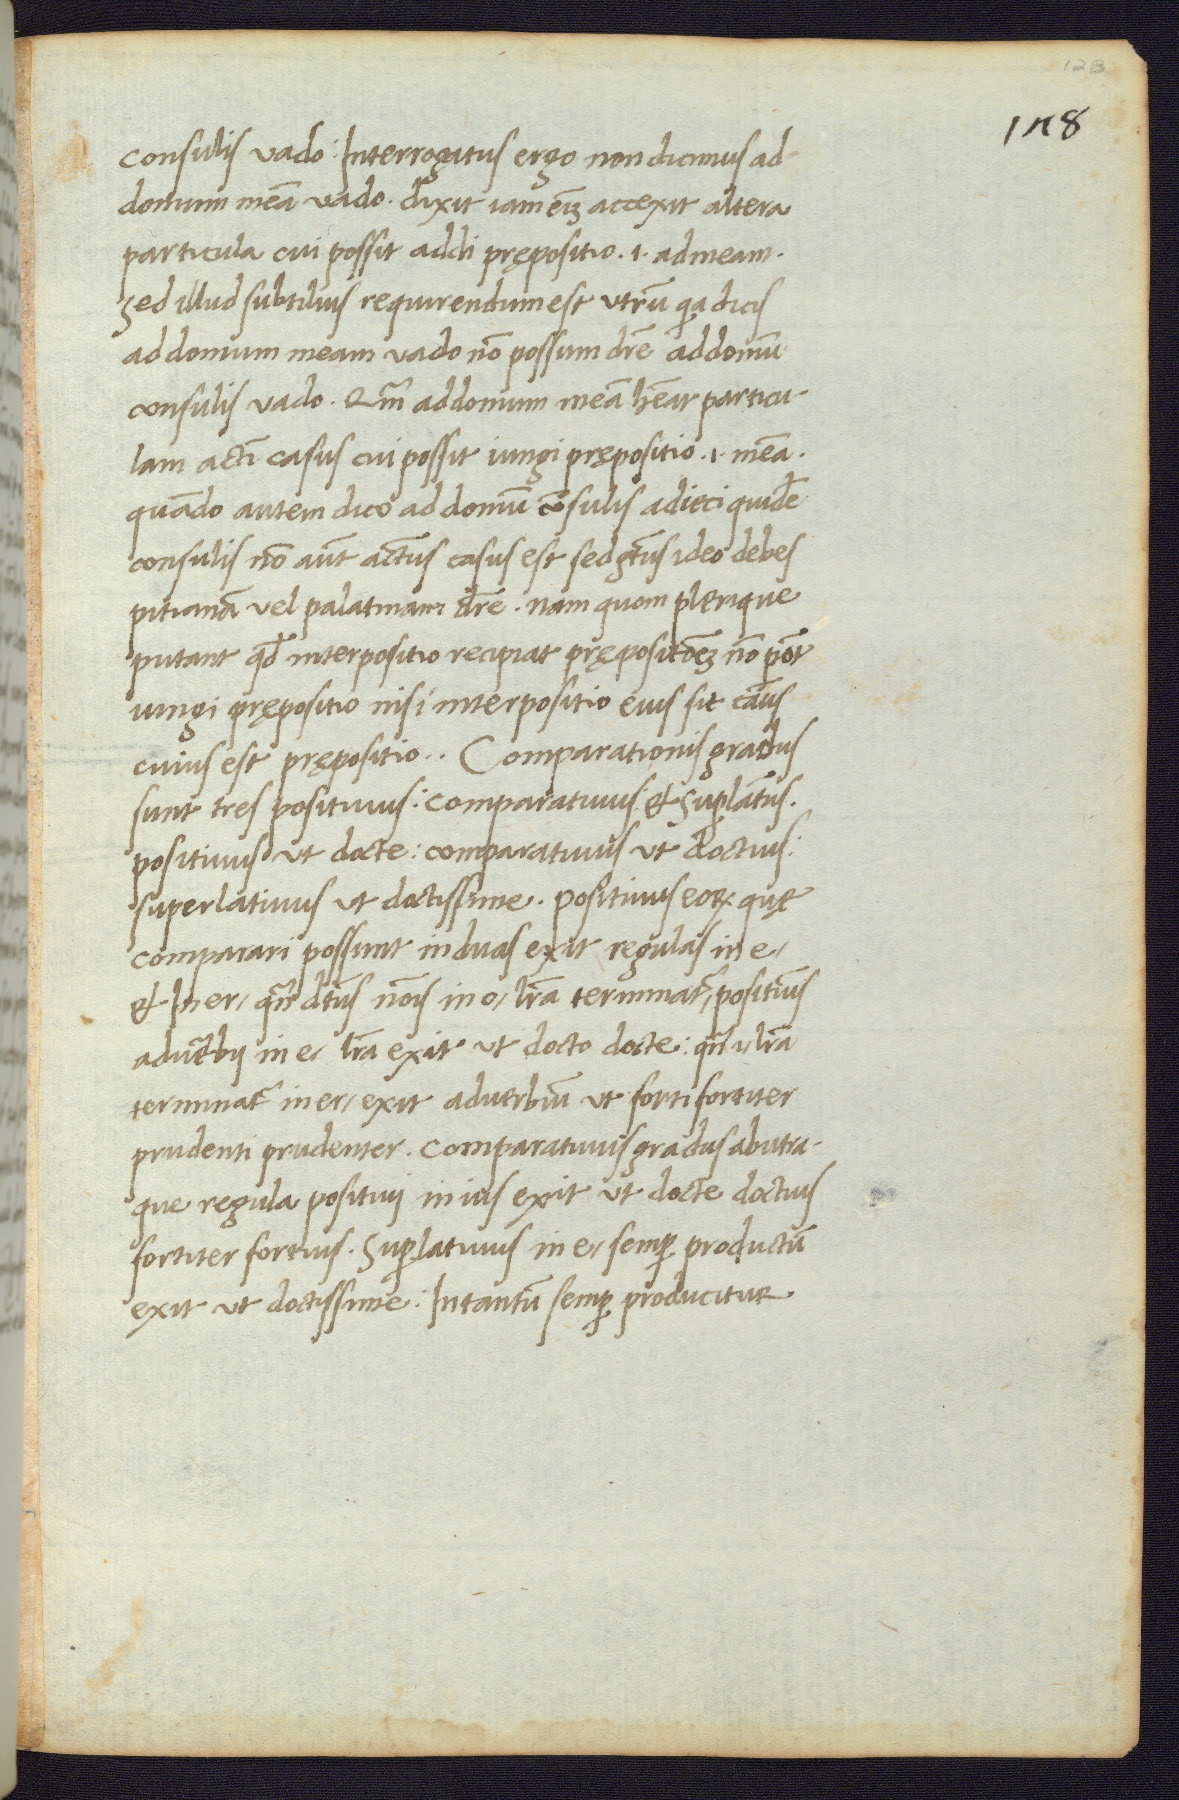 128
128
consulis vado: Interrogatus ergo non dicimus ad
domum meā vado. dixit iam em̄ accexit altera
particula cui possit addi prępositio .i. ad meam.
Sed illud subtilius requirendum est utrū q̄a dicis
ad domum meam vado nō possum dr̄e ad domū
consulis vado. Qm̄ ad domum meā hēat particu-
lam acti casus cui possit iungi prępositio .i. meā.
quādo autem dico ad domū cōsulis adieci quidē
consulis nō aūt actūs casus est sed gtūs ideo debes
pitianā vel palatinam dr̄e. nam quom plerique
putant qd̄ interpositio recipiat prępositōēȝ nō pōt
iungi prępositio nisi interpositio eius sit cāūs
cuius est prępositio.. Comparationis gradus
sunt tres positivus: comparativus: & suplātūs.
positivus ut docte: comparativus ut doctius:
superlativus ut doctissime. Positivus eoꝝ quę
comparari possunt in duas exit regulas in e/
& In er/ qn̄ dtūs nōis in o/ lr̄a terminat᷑/ positiūs
aduerbij in e/ lr̄a exit ut docto docte: qn̄ i/ lr̄a
terminat᷑ in er/ exit adverbiū ut forti fortiter
prudenti prudenter. comparativus gradus ab utra-
que regula positivi in ius exit ut docte doctius
fortiter fortius. Suꝑlativus in e/ semꝑ productū
exit ut doctissime: In tantū semꝑ producitur